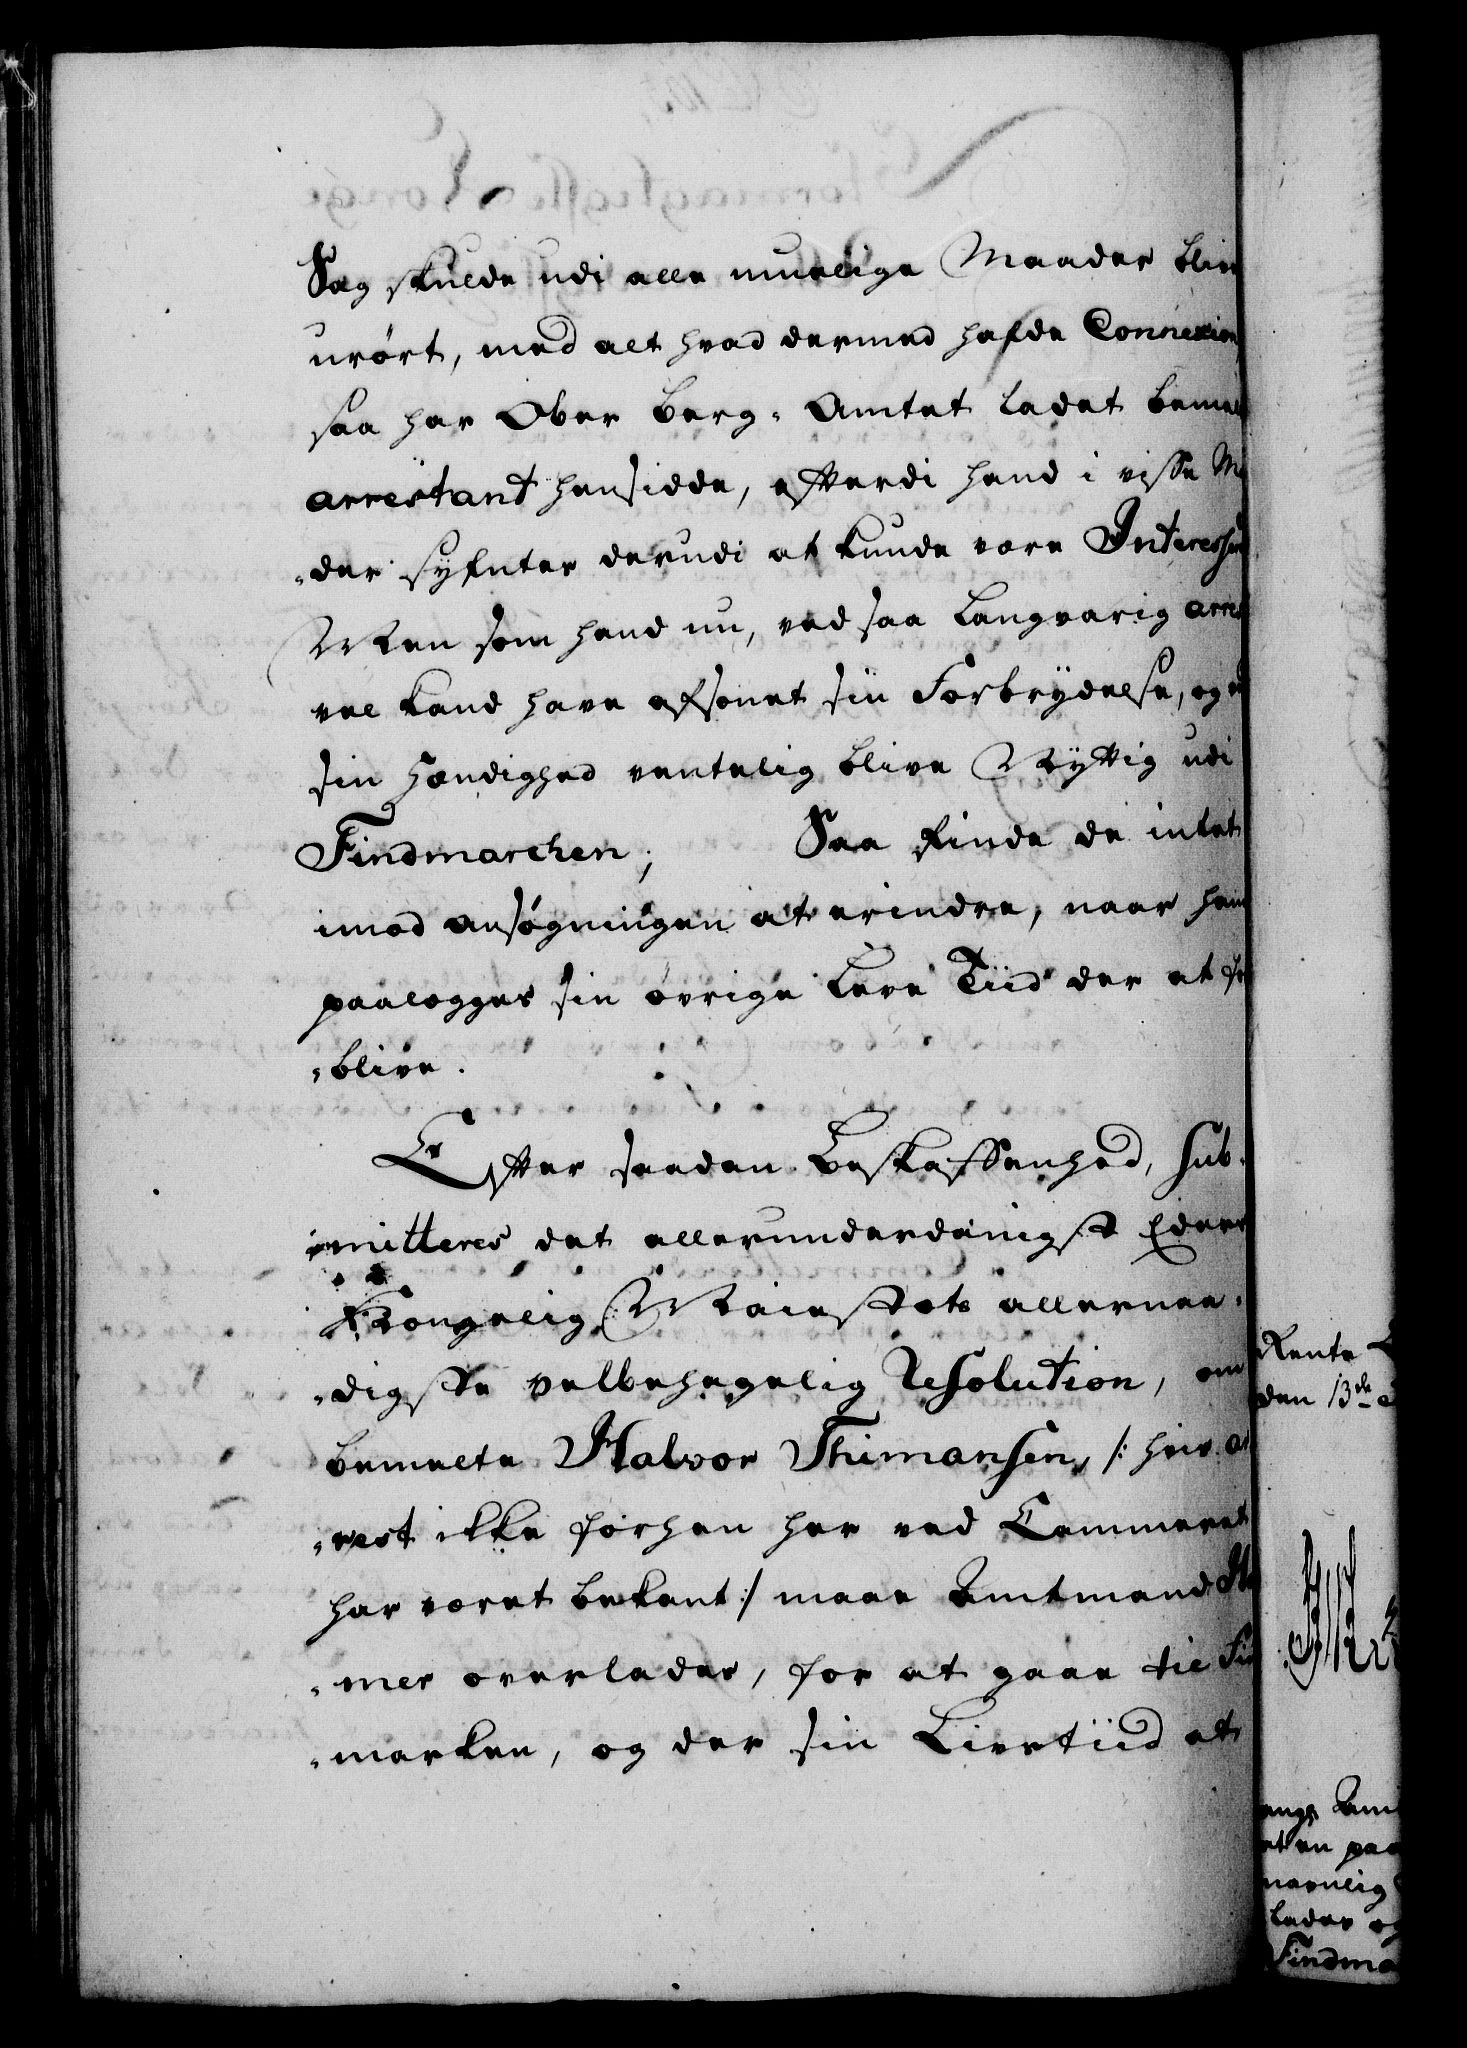 Sag skulde udi alle muelige Maader bliv
urørt, med alt hvad dermed hafde Connexion,
saa har Ober Berg-Amtet ladet bemel
arrestant hensidde, efterdi hand i visse Ma
-der syntes derudi at kunde være Interess
Men som hand nu, ved saa langvarig arre
vel kand have afsonet sin Forbrydelse, og
sin Hændighed ventelig blive Nyttig udi
Findmarchen; Saa finde de intet
imod ansøgningen at erindre, naar ham
paalegges sin øvrige Leve Tiid der at for
-blive.
Efter saadan Beskaffenhed, sub-
-mitteres det allerunderdanigst Eders
Kongelig Maiestets allernaa-
-digste velbehagelig Resolution, om
bemelte Halvor Thimansen, /: hvis ar
-rest ikke forhen her ved Cammeret
har været bekant :/ maae Amtmand
-mer overlades, for at gaae til Fin
-marken, og der sin Livs tiid at
Rente
den 13de
Amt
paa
navnlig
lades og
Findma